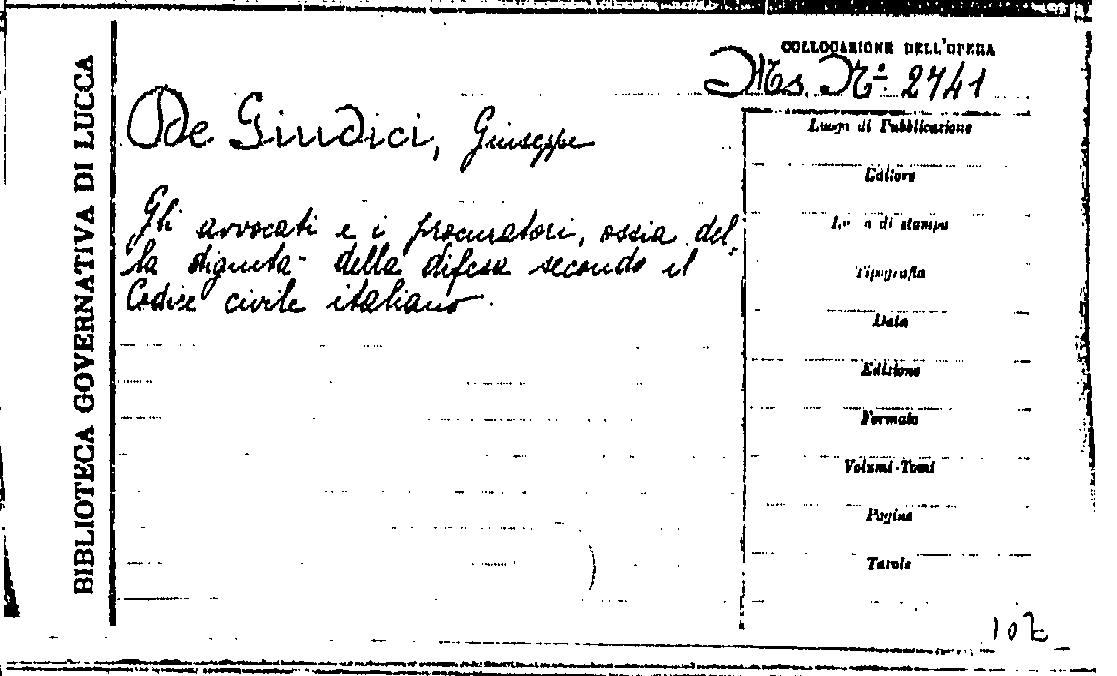 BIBLIOTECA GOVERNATIVA DI LUCCA
COLLOCAZIONE DELL'OPERA
Ms. N.° 2741
De Giudici, Giuseppe
Gli avvocati e i procuratori, ossia del-
la dignità della difesa secondo il
Codice civile italiano.
Luogo di Pubblicazione
Editore
di stampa
Tipografia
Data
Edizione
Formato
Volumi-Tomi
Pagine
Tavole